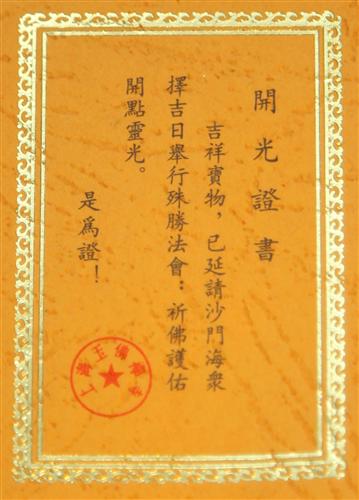 開光證書
吉祥寶物，已延請沙門海衆
擇吉日舉行殊勝法會：祈佛護佑
開點靈光。
是爲證！
上海玉佛禪寺